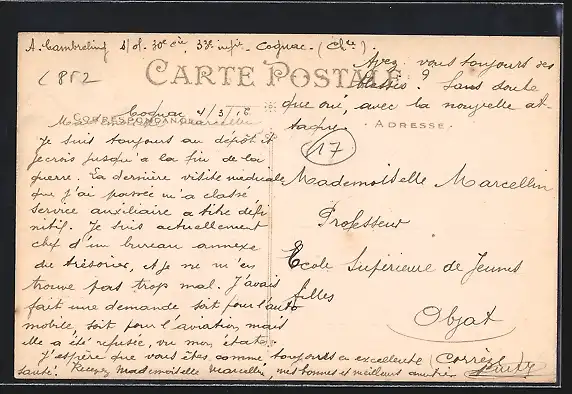 A. Cambreling s/of. 30e cie, 33e infie - Cognac - (Chte).
(852
CARTE POSTALE
CORRESPONDANCE
Cognac 4/3/16
Mademoiselle Marcellin
Je suis toujours au dépôt et
je crois jusqu'à la fin de la
guerre. La dernière visite médicale
que j'ai passée m'a classé
service auxiliaire à titre défi
nitif. Je suis actuellement
chef d'un bureau annexe
du trésorier, et je ne m'en
trouve pas trop mal. J'avais
fait une demande soit pour l'auto
mobile, soit pour l'aviation, mais
elle a été refusée, vu mon état.
J'espère que vous êtes comme toujours en excellente
santé. Recevez Mademoiselle Marcellin, mes bonnes et meilleurs amitiés
Avez-vous toujours des
blessés? Sans doute
que oui, avec la nouvelle at-
taque.
ADRESSE
17
Mademoiselle Marcellin
Professeur
Ecole Supérieure de Jeunes
filles
Objat
(Corrèze)